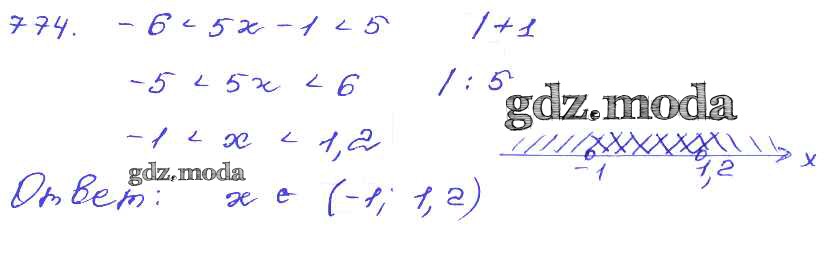 774. -6 < 5x - 1 < 5 /+1
-5 < 5x < 6 /: 5
gdz.moda
-1 < x < 1,2
-1 1,2 x
gdz.moda
Ответ: x ∈ (-1; 1,2)